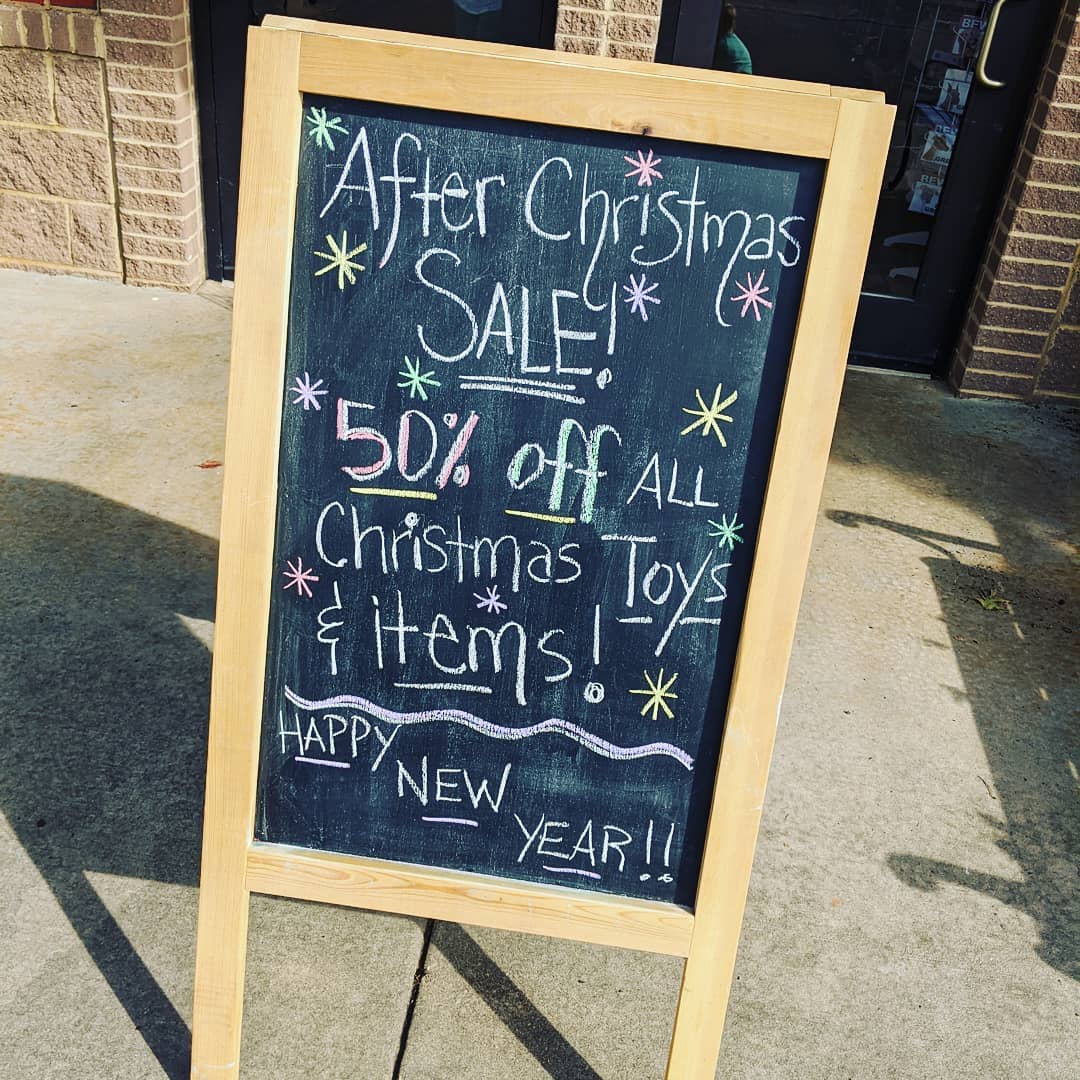 After Christmas
SALE!
50% off ALL
Christmas Toys
& items!
HAPPY
NEW
YEAR!!